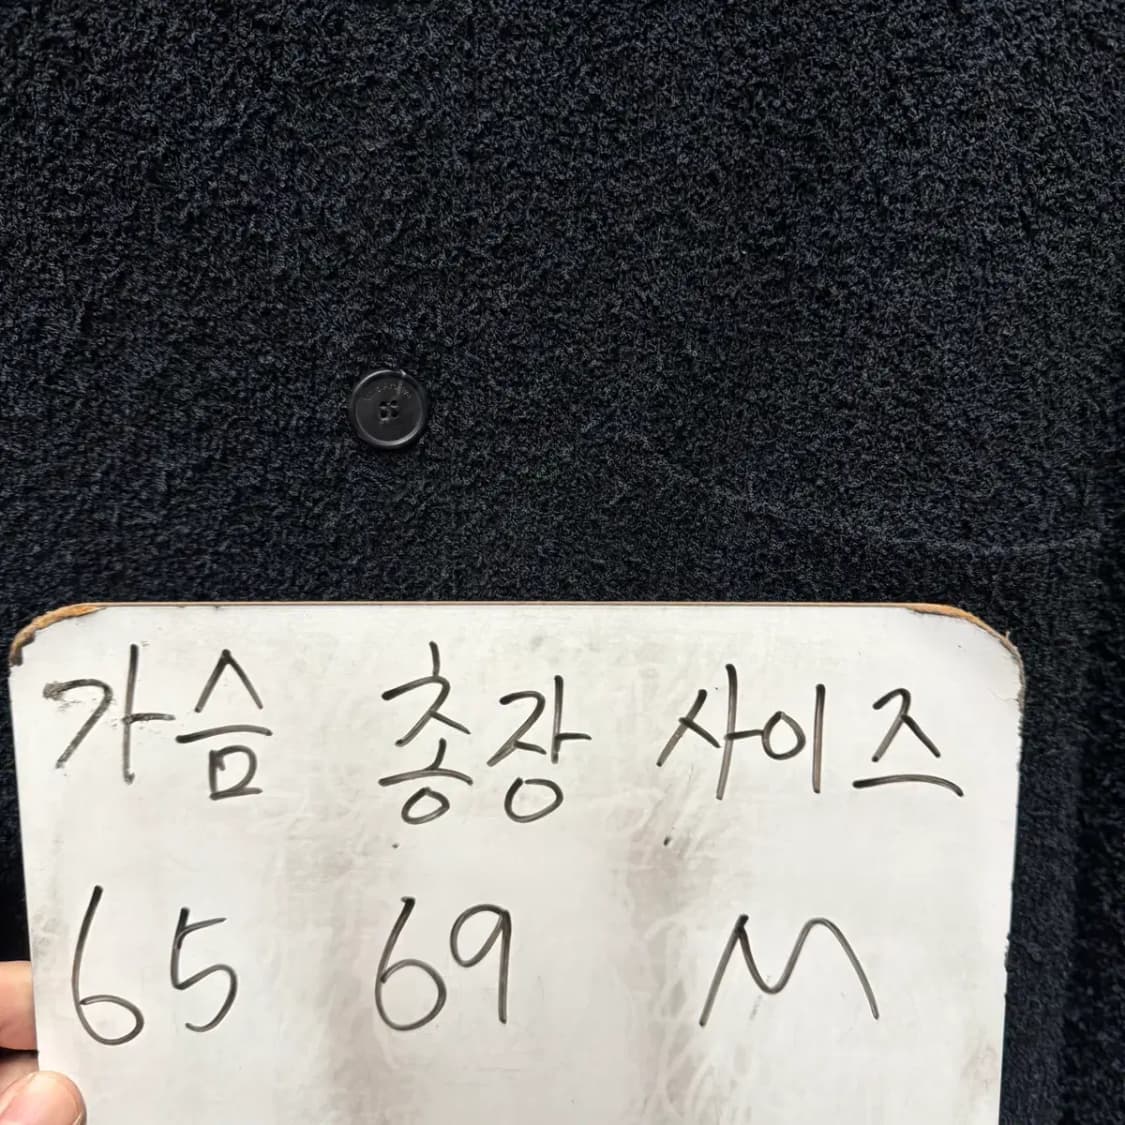 가슴 총장 사이즈
65 69 M